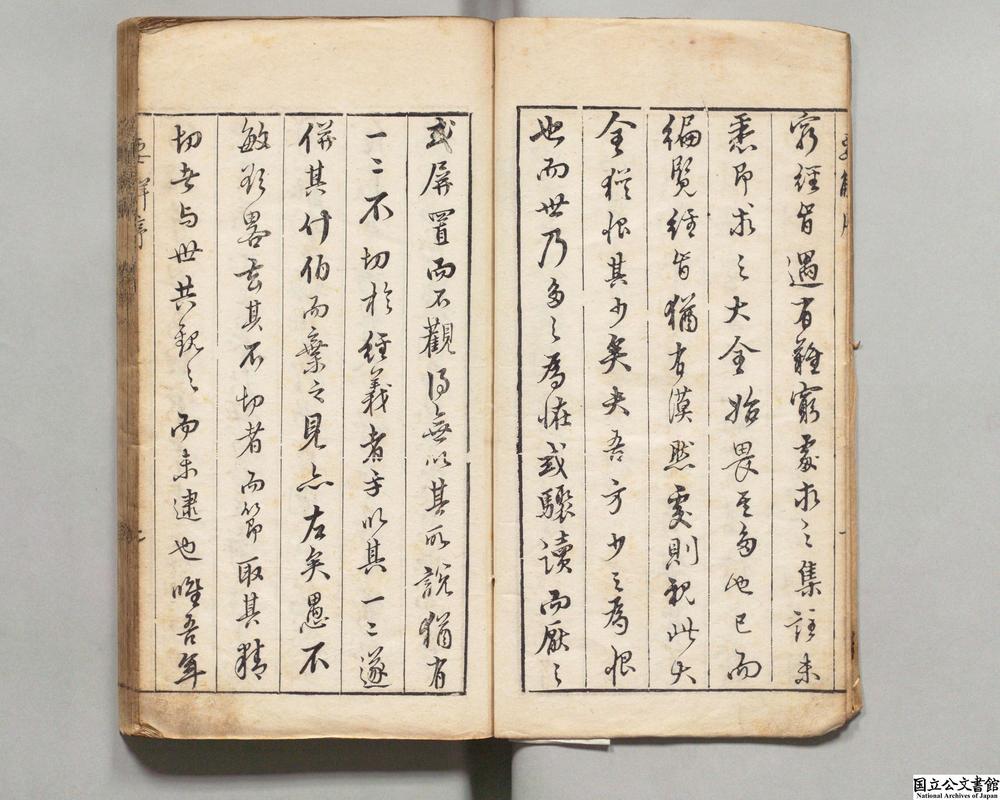 窮經旨遇有難窮處求之集註未
悉即求之大全始畏其多也已而
編覽經旨猶有漠然處則視此大
全猶恨其少矣夫吾方少之為恨
也而世乃多之為怪或驟讀而厭之
或屏置而不觀得無以其所說猶有
一二不切於經義者乎以其一二遂
併其什伯而棄之見亦左矣愚不
敏欲畧去其不切者而節取其精
切者与世共觀之而未逮也唯吾年
要解序
国立公文書館
National Archives of Japan